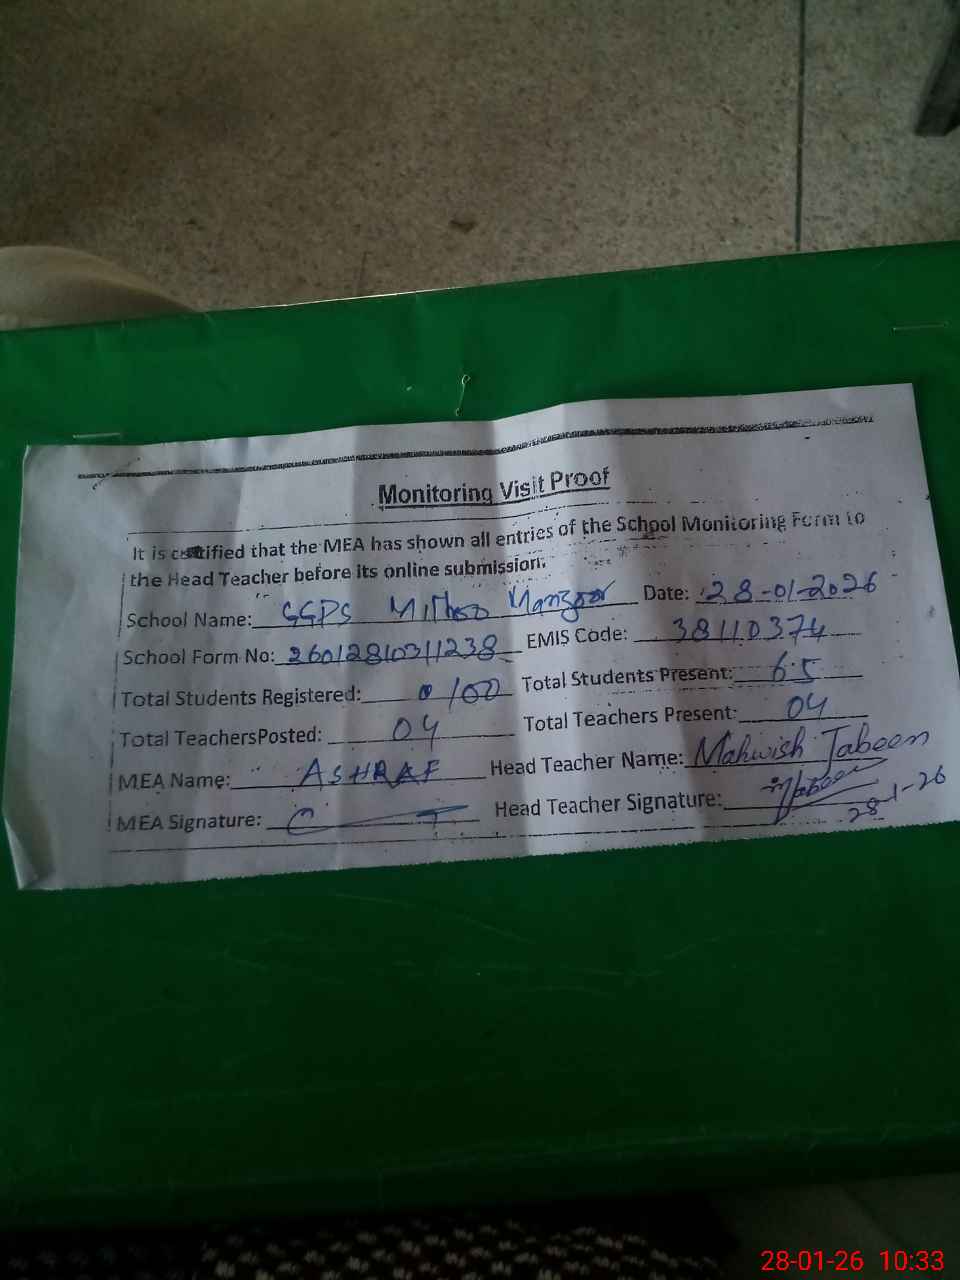 Monitoring Visit Proof
It is certified that the MEA has shown all entries of the School Monitoring Form to
the Head Teacher before its online submission.
School Name: GGPS Mithoo Manzoor Date: 28-01-2026
School Form No: 26012810311238 EMIS Code: 38110374
Total Students Registered: 100 Total Students Present: 65
Total TeachersPosted: 04 Total Teachers Present: 04
MEA Name: ASHRAF Head Teacher Name: Mahwish Jabeen
MEA Signature: Head Teacher Signature: Jabeen
28-1-26
28-01-26 10:33